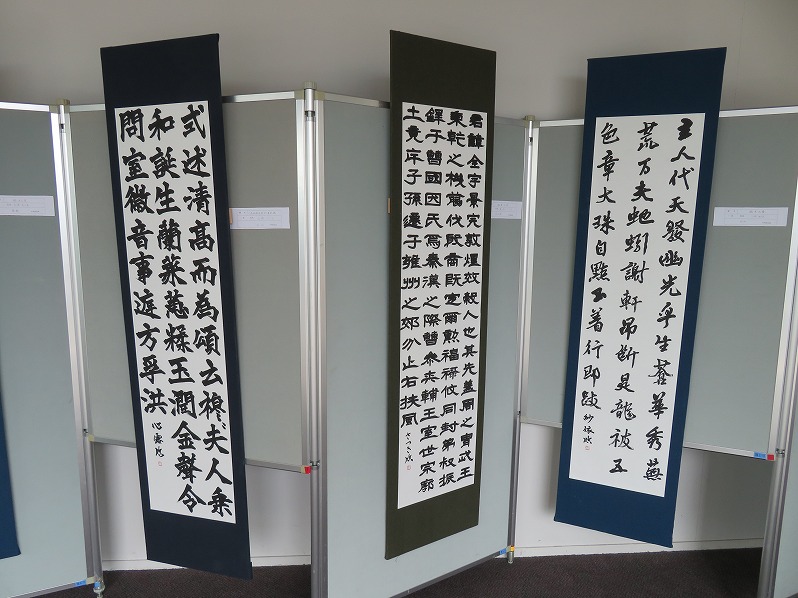 式述清高而為頌云穆〻夫人乗
和誕生蘭英蕙糅玉潤金聲令
問室徽音事遊方孚洪
君諱全字景完敦煌效穀人也其先蓋周之冑武王
秉乾之機翦伐殷商既定爾勲福祿攸同封弟叔振
鐸于曹國因氏焉秦漢之際曹參夾輔王室世宗廓
土竟斥子孫遷于雍州之郊分止右扶風
さつき臨
主人代天發幽光平生蒼華秀蕪
荒万丈蚯蚓謝軒昂断是龍被五
色章大珠自點不着行即跋